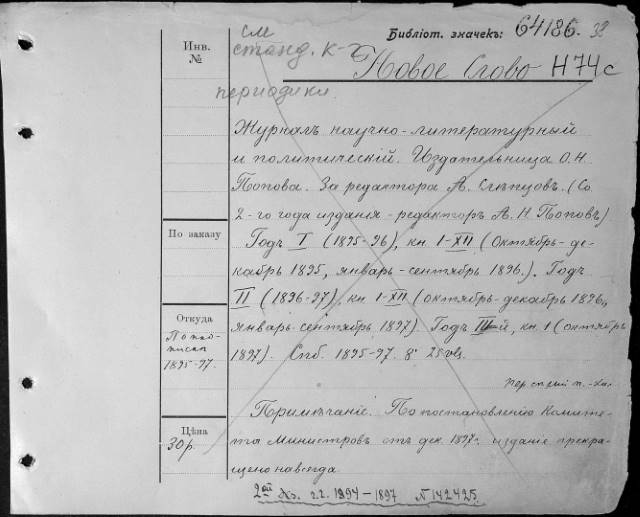 Библіот. значекъ: 64186. 
см
станд. к-
периодики
Инв.
№
Новое Слово Н74с
Журналъ научно-литературный
и политическій. Издательница О.Н.
Попова. За редактора А. Слѣпцовъ. (Со
2-го года изданія - редакторъ А. Н. Поповъ)
По заказу
Годъ I (1895-96), кн I-XII (Октябрь-де-
кабрь 1895, январь-сентябрь 1896.). Годъ
II (1896-97), кн I-XII (октябрь-декабрь 1896,
январь-сентябрь 1897) Годъ III-й, кн. 1 (октябрь
1897). Спб. 1895-97. 8° 25 vls.
Откуда
1895-97.
Примѣчаніе. По постановленію Комите-
та Министровъ отъ дек. 1897г. изданіе прекра-
щено навсегда.
Цѣна
30р.
2ой Эк. г.г. 1894-1897 N 142425